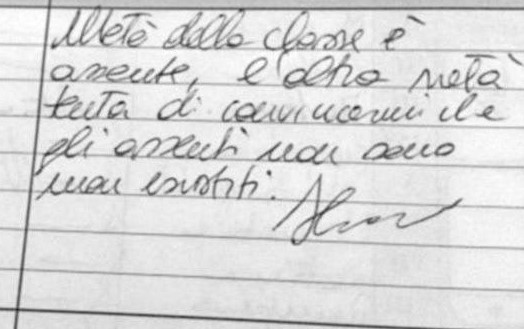 Metà della classe è
assente, l'altra metà
tenta di convincermi che
gli assenti non sono
mai esistiti.